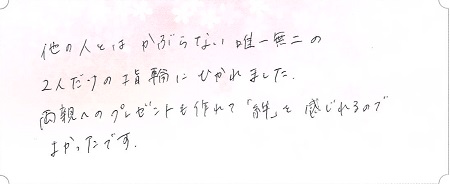 他の人とは かぶらない 唯一無二の
2人だけの指輪にひかれました.
両親へのプレゼントも作れて「絆」を感じれるので
よかったです.